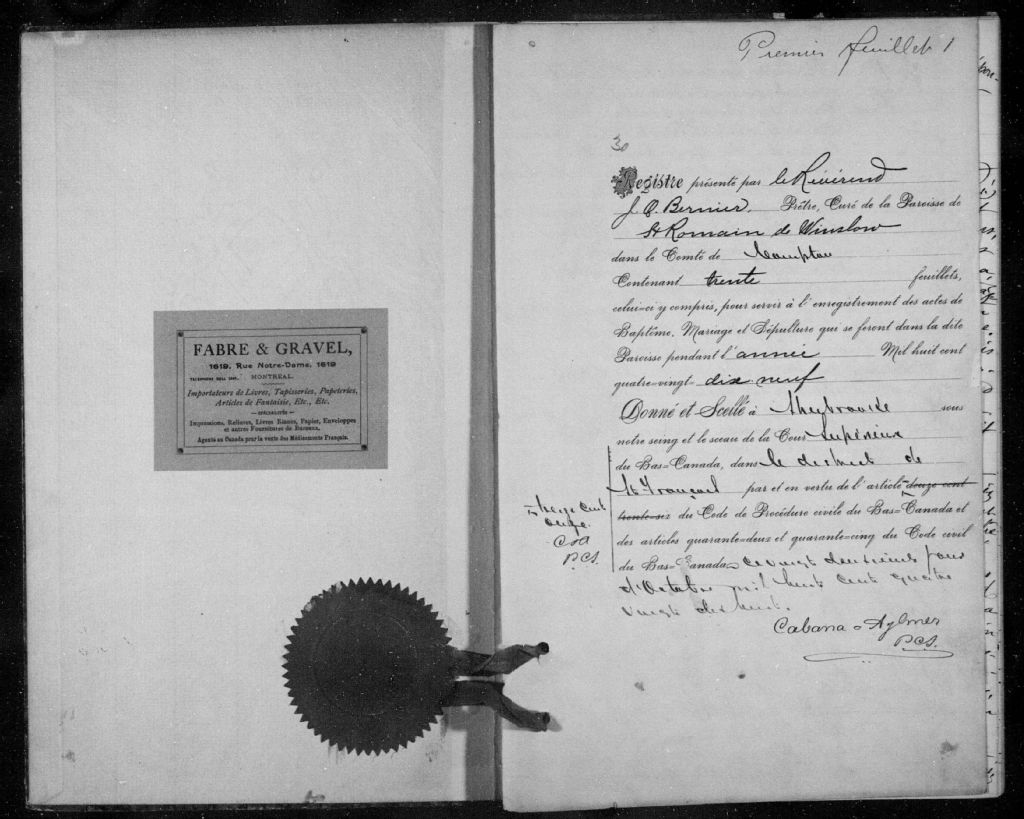 FABRE & GRAVEL,
1619, Rue Notre-Dame, 1619
MONTREAL.
Importateurs de Livres, Tapisseries, Papeteries,
Articles de Fantaisie, Etc., Etc.
— SPÉCIALITÉS —
Impressions, Reliures, Livres Blancs, Papier, Enveloppes
et autres Fournitures de Bureaux.
Agents au Canada pour la vente des Médicaments Français.
Premier feuillet 1
30
Registre présenté par le Révérend
J. O. Bernier, Prêtre, Curé de la Paroisse de
St Romain de Winslow
dans le Comté de Compton
Contenant trente feuillets,
celui-ci y compris, pour servir à l'enregistrement des actes de
Baptême, Mariage et Sépulture qui se feront dans la dite
Paroisse pendant l'année Mil huit cent
quatre-vingt dix neuf
Donné et Scellé à Sherbrooke sous
notre seing et le sceau de la Cour Supérieure
du Bas-Canada, dans le district de
St François par et en vertu de l'article douze cent
trente-six du Code de Procédure civile du Bas-Canada et
des articles quarante-deux et quarante-cinq du Code civil
du Bas-Canada ce vingt deuxième jour
d'Octobre mil huit cent quatre
vingt dix huit.
treize cent
onze.
C & A
P.C.S.
Cabana & Aylmer
P.C.S.